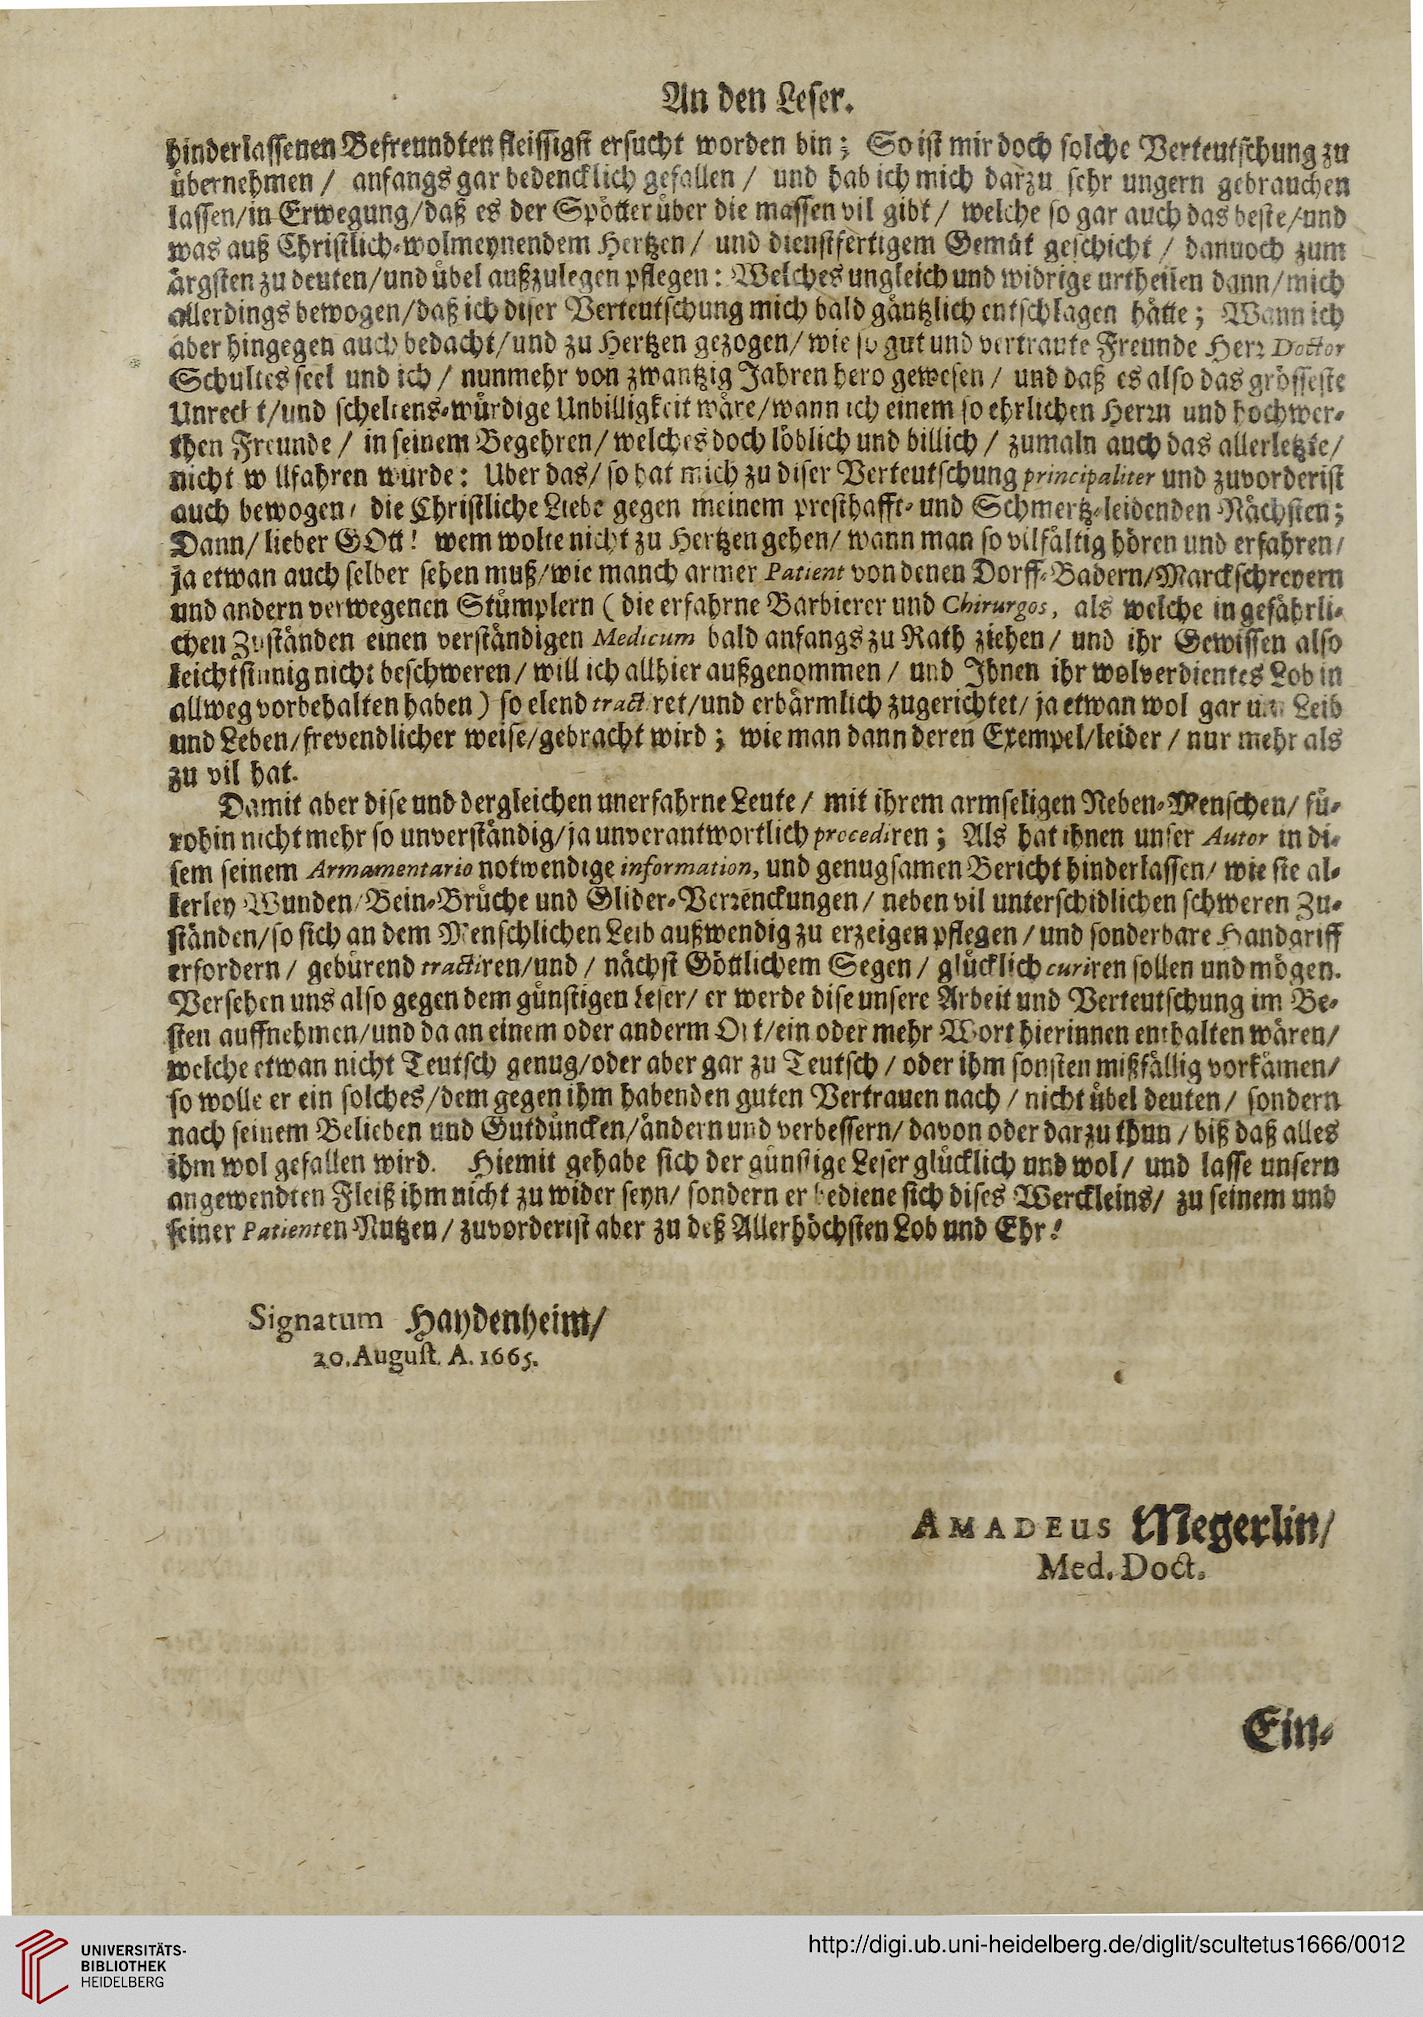 An den Leser.
hinderlassenen Befreundten fleissigst ersucht worden bin; So ist mir doch solche Verteutschung zu
übernehmen / anfangs gar bedencklich gefallen / und hab ich mich darzu sehr ungern gebrauchen
lassen/in Erwegung/daß es der Spötter über die massen vil gibt / welche so gar auch das beste/und
was auß Christlich-wolmeynendem Hertzen / und dienstfertigem Gemüt geschicht / dannoch zum
ärgsten zu deuten/und übel außzulegen pflegen: Welches ungleich und widrige urtheilen dann/mich
allerdings bewogen/daß ich diser Verteutschung mich bald gäntzlich entschlagen hätte; Wann ich
aber hingegen auch bedacht/und zu Hertzen gezogen/wie so gut und vertraute Freunde Herr Doctor
Schultes seel und ich / nunmehr von zwantzig Jahren hero gewesen / und daß es also das grösseste
Unrecht/und scheltens-würdige Unbilligkeit wäre/wann ich einem so ehrlichen Herrn und hochwer-
then Freunde / in seinem Begehren/welches doch löblich und billich / zumaln auch das allerletzte/
nicht willfahren wurde: Uber das/ so hat mich zu diser Verteutschung principaliter und zuvorderist
auch bewogen/ die Christliche Liebe gegen meinem presthafft- und Schmertz-leidenden Nächsten;
Dann/ lieber GOtt! wem wolte nicht zu Hertzen gehen/ wann man so vilfältig hören und erfahren/
ja etwan auch selber sehen muß/wie manch armer Patient von denen Dorff-Badern/Marckschreyern
und andern verwegenen Stümplern ( die erfahrne Barbierer und Chirurgos, als welche in gefährli-
chen Zuständen einen verständigen Medicum bald anfangs zu Rath ziehen / und ihr Gewissen also
leichtsinnig nicht beschweren / will ich allhier außgenommen / und Ihnen ihr wolverdientes Lob in
allweg vorbehalten haben ) so elend tractiret/und erbärmlich zugerichtet/ ja etwan wol gar um Leib
und Leben/frevendlicher weise/gebracht wird; wie man dann deren Exempel/leider / nur mehr als
zu vil hat.
Damit aber dise und dergleichen unerfahrne Leute / mit ihrem armseligen Neben-Menschen/ fü-
rohin nicht mehr so unverständig/ja unverantwortlich procediren; Als hat ihnen unser Autor in di-
sem seinem Armamentario notwendige information, und genugsamen Bericht hinderlassen/ wie sie al-
lerley Wunden/Bein-Brüche und Glider-Verrenckungen / neben vil unterschidlichen schweren Zu-
ständen/so sich an dem Menschlichen Leib außwendig zu erzeigen pflegen / und sonderbare Handgriff
erfordern / gebürend tractiren/und / nächst Göttlichem Segen / glücklich curiren sollen und mögen.
Versehen uns also gegen dem günstigen Leser/ er werde dise unsere Arbeit und Verteutschung im Be-
sten auffnehmen/und da an einem oder anderm Ort/ein oder mehr Wort hierinnen enthalten wären/
welche etwan nicht Teutsch genug/oder aber gar zu Teutsch / oder ihm sonsten mißfällig vorkämen/
so wolle er ein solches/dem gegen ihm habenden guten Vertrauen nach / nicht übel deuten / sondern
nach seinem Belieben und Gutdüncken/ändern und verbessern/ davon oder darzu thun / biß daß alles
ihm wol gefallen wird. Hiemit gehabe sich der günstige Leser glücklich und wol / und lasse unsern
angewendten Fleiß ihm nicht zu wider seyn/ sondern er bediene sich dises Werckleins/ zu seinem und
seiner Patienten Nutzen / zuvorderist aber zu deß Allerhöchsten Lob und Ehr!
Signatum Haydenheim/
20. August. A. 1665.
AMADEUS Megerlin/
Med. Doct.
Ein-
UNIVERSITÄTS-
BIBLIOTHEK
HEIDELBERG
http://digi.ub.uni-heidelberg.de/diglit/scultetus1666/0012